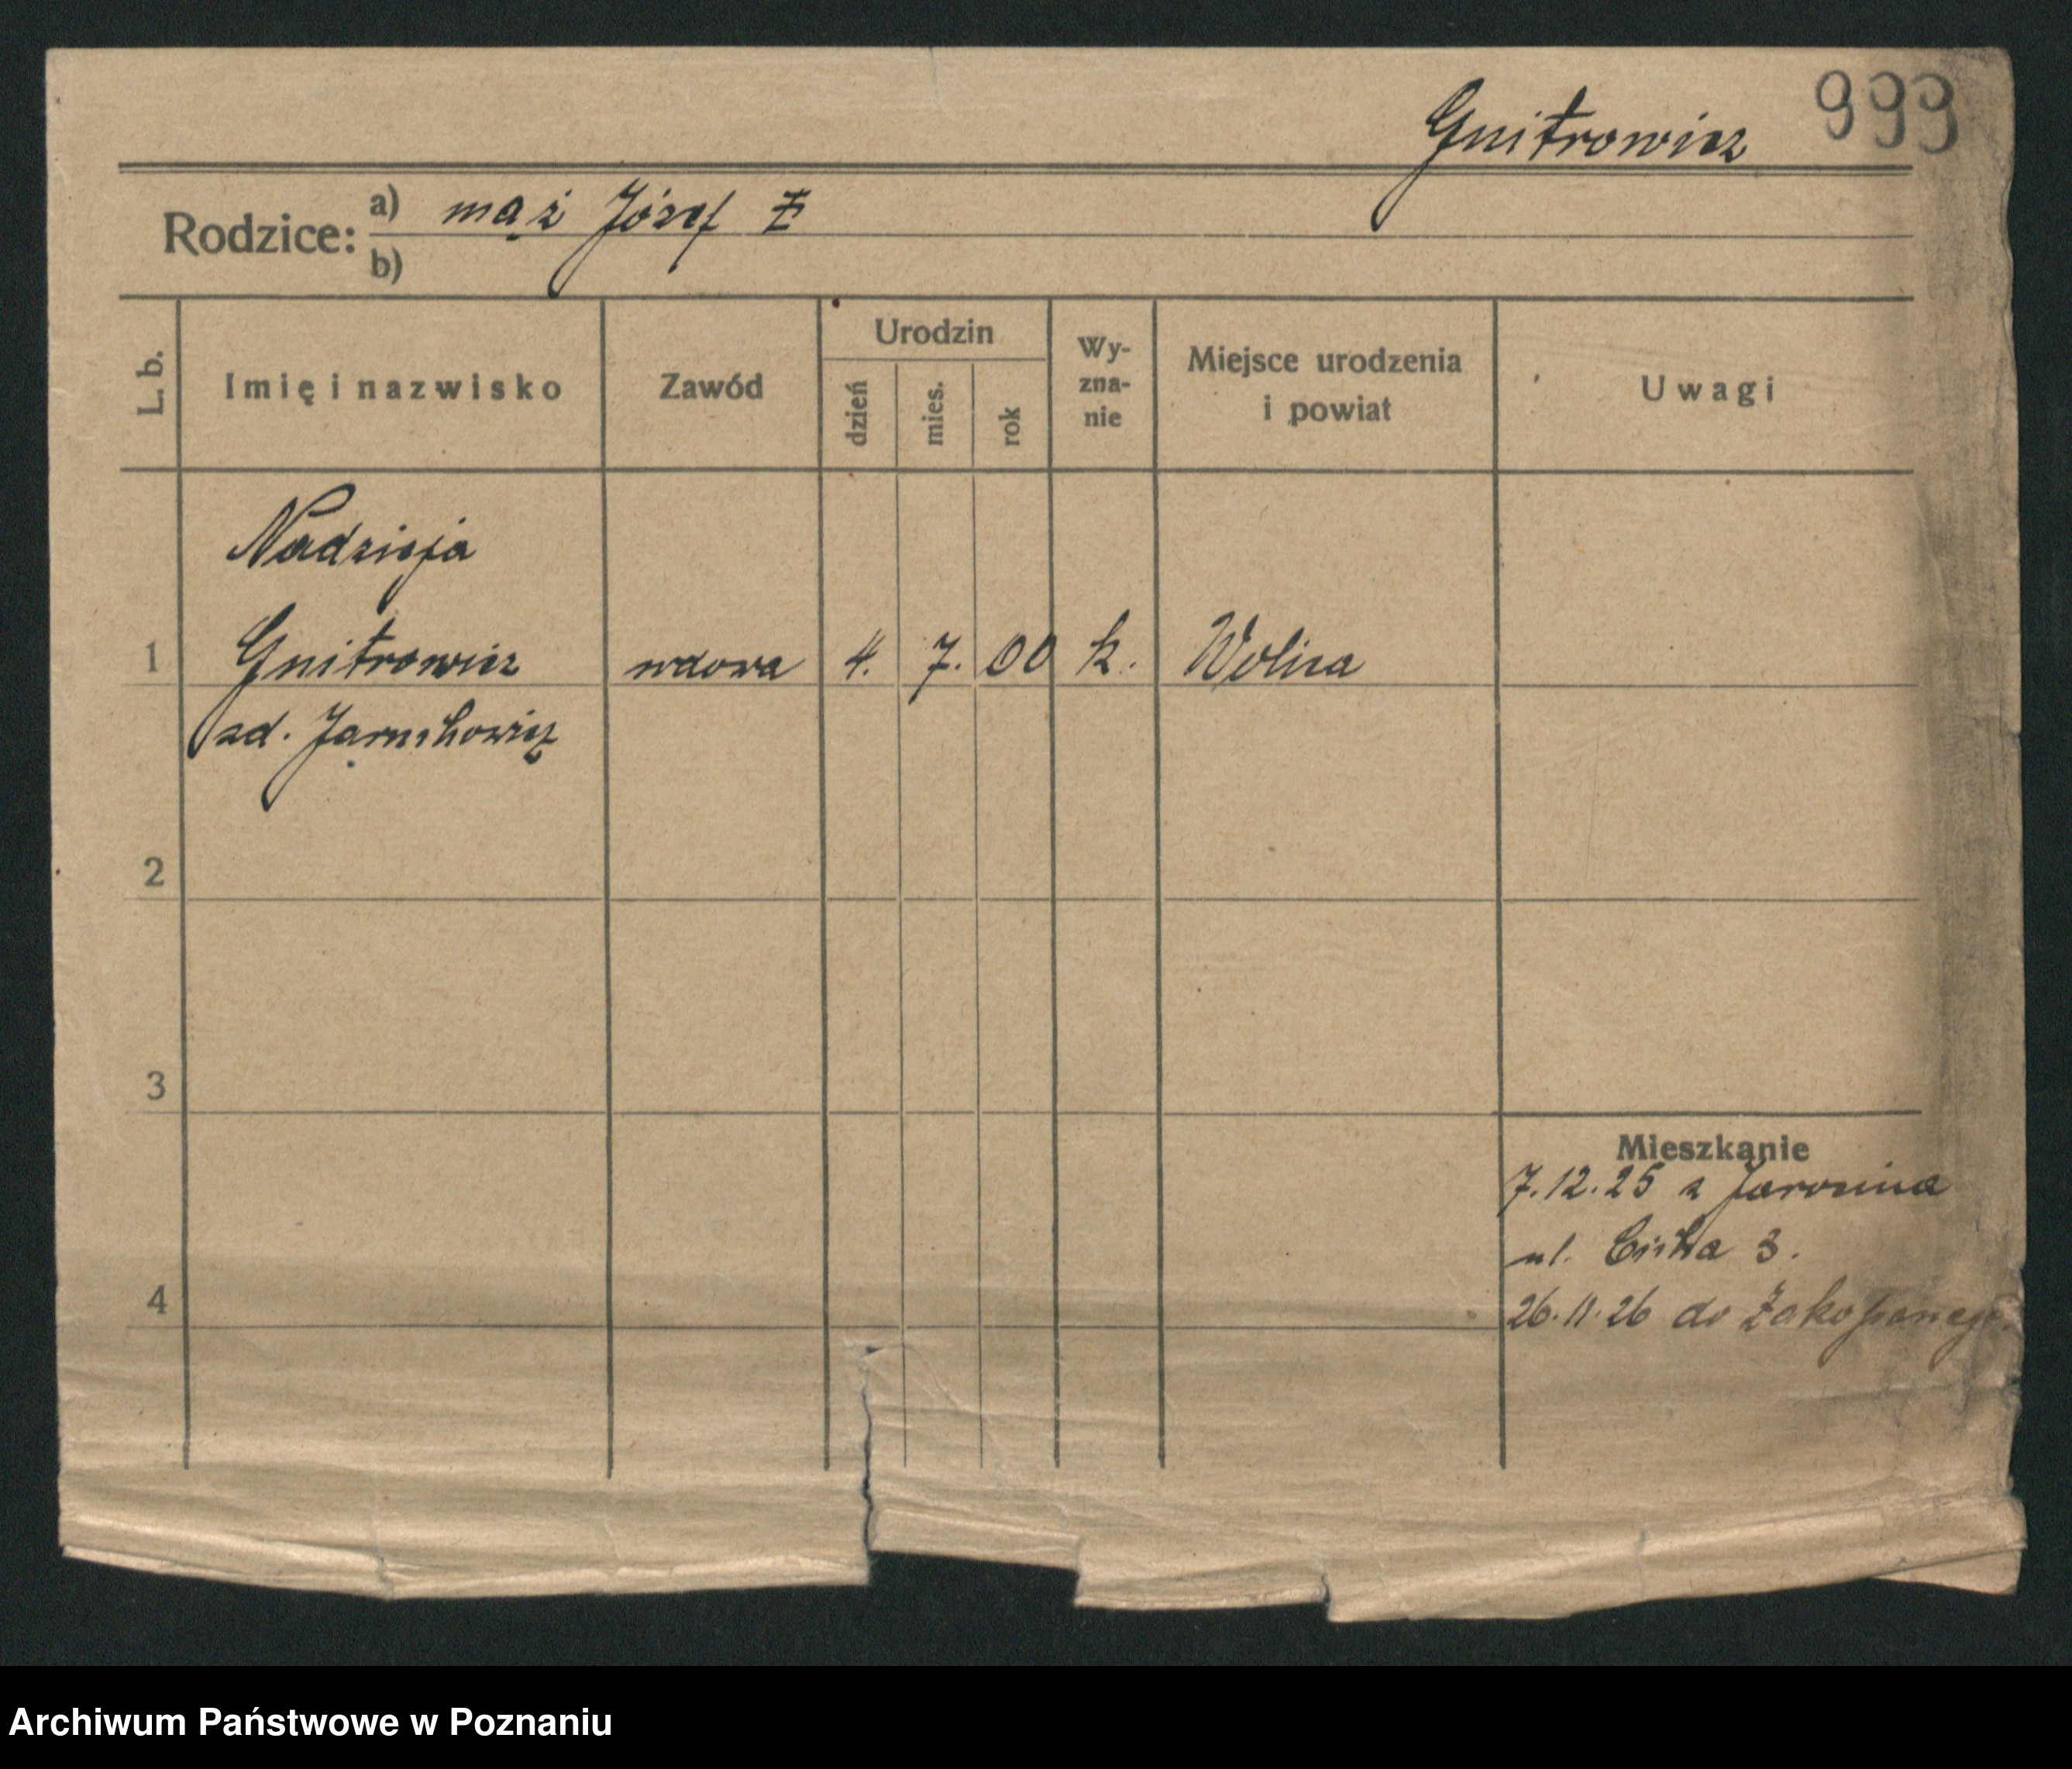 999
Gnitrowicz
Rodzice: a) mąż Józef
b)
L. b.
Imię i nazwisko
Zawód
Urodzin
dzień
mies.
rok
Wy-
zna-
nie
Miejsce urodzenia
i powiat
Uwagi
Nadzieja
1 Gnitrowicz wdowa 4. 7. 00 k. Wolica
zd.
2
3
4
Mieszkanie
7.12.25 z Jarocina
ul. Cicha 3.
26.11.26 do Zakopanego
Archiwum Państwowe w Poznaniu